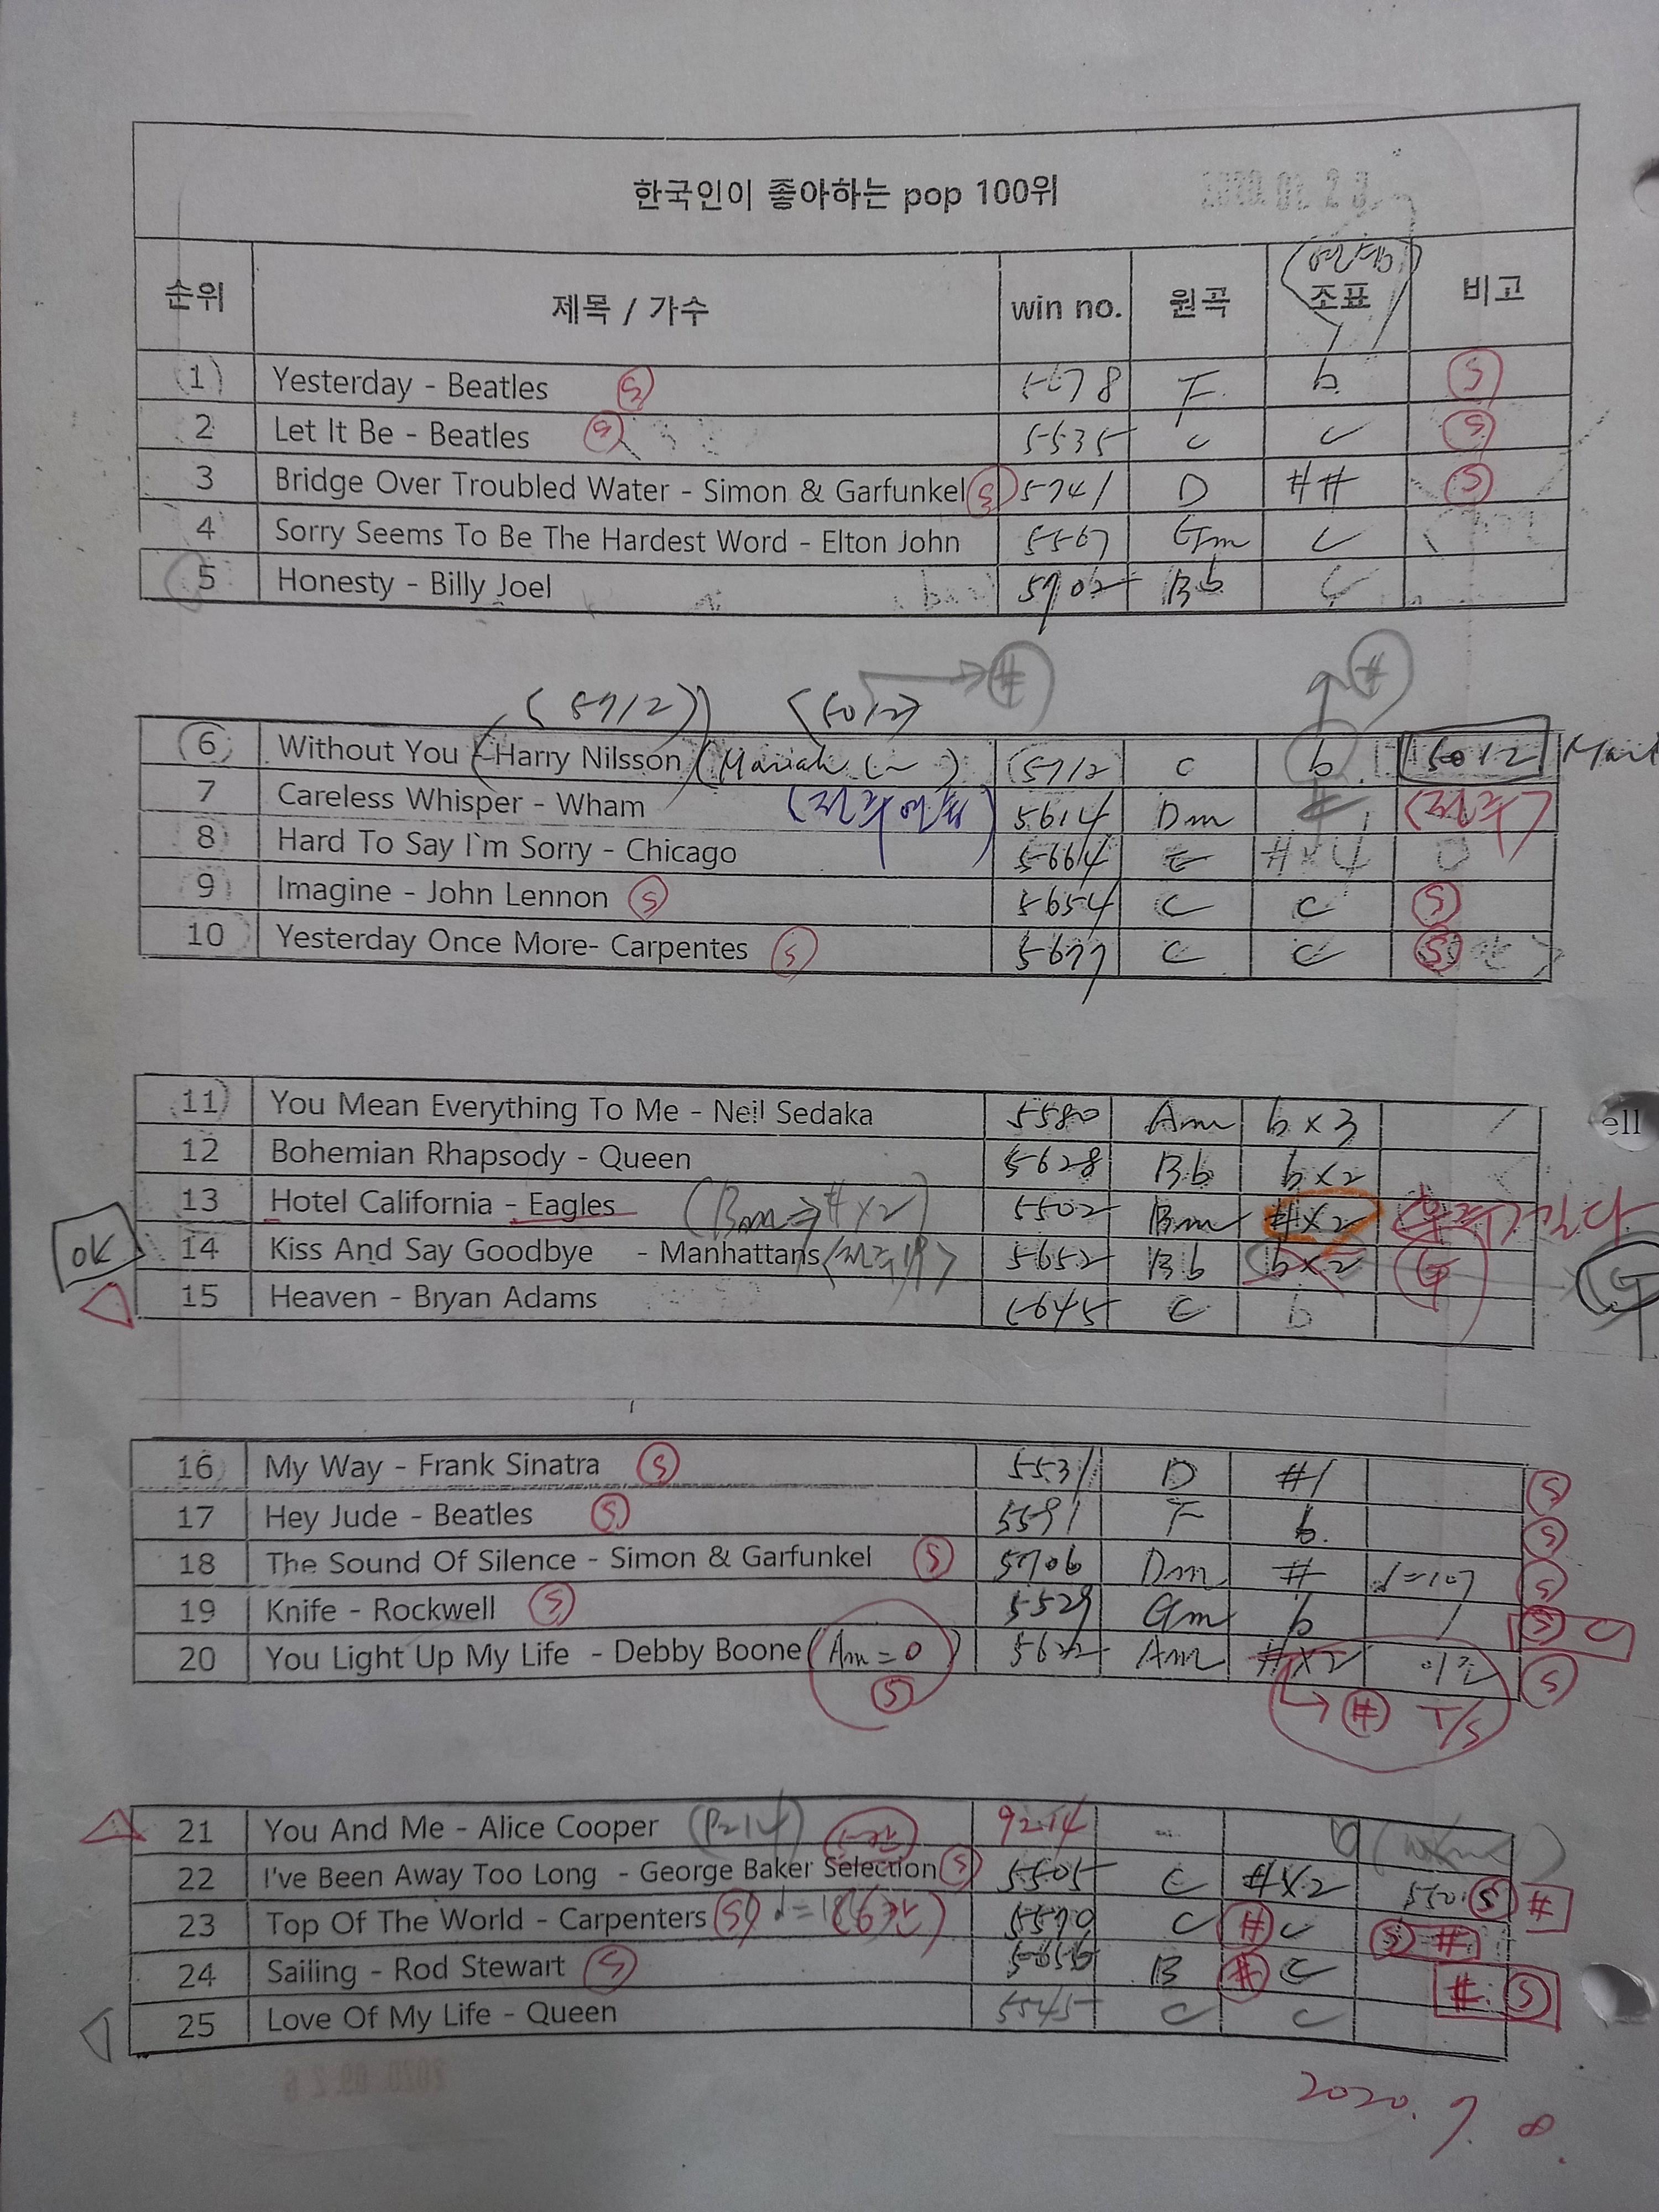 한국인이 좋아하는 pop 100위
순위 제목 / 가수 win no. 원곡 조표 비고
(1) Yesterday - Beatles S 5678 F b S
2 Let It Be - Beatles S 5535 C C S
3 Bridge Over Troubled Water - Simon & Garfunkel S 5741 D ## S
4 Sorry Seems To Be The Hardest Word - Elton John 5567 Gm C
5 Honesty - Billy Joel 5702 Bb C
(5712) (5012) → # #
(6) Without You - Harry Nilsson (Mariah (~) (5712 C b 5012
7 Careless Whisper - Wham (전주 5614 Dm # (전주)
8 Hard To Say I`m Sorry - Chicago 5664 E #×4
9 Imagine - John Lennon S 5654 C C S
10 Yesterday Once More- Carpentes S 5677 C C S
11 You Mean Everything To Me - Neil Sedaka 5580 Am b×3
ell
12 Bohemian Rhapsody - Queen 5628 Bb b×2
13 Hotel California - Eagles (Bm⇒#×2) 5502 Bm #×2
OK 14 Kiss And Say Goodbye - Manhattans 5652 Bb b×2 G G
15 Heaven - Bryan Adams 5645 C b
16 My Way - Frank Sinatra S 5531 D #1 S
17 Hey Jude - Beatles S 5591 F b S
18 The Sound Of Silence - Simon & Garfunkel S 5706 Dm # ♩=107 S
19 Knife - Rockwell S 5529 Gm b S C
20 You Light Up My Life - Debby Boone (Am=0) S 5622 Am #×2 S
→ # T/S
21 You And Me - Alice Cooper (P214) 9214 b
22 I've Been Away Too Long - George Baker Selection S 5505 C #×2 S #
23 Top Of The World - Carpenters S 5570 C # C S #
24 Sailing - Rod Stewart S 5656 B # C # S
25 Love Of My Life - Queen 5545 C C
2020. 7. 8.